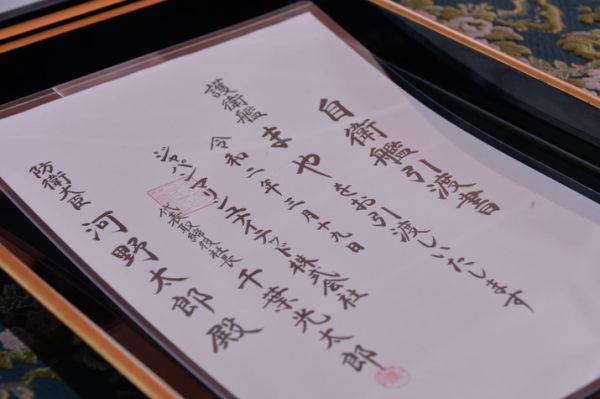 自衛艦引渡書
護衛艦 まや をお引渡しいたします
令和二年三月十九日
ジャパン マリンユナイテッド株式会社
代表取締役社長 千葉光太郎
防衛大臣 河野太郎殿